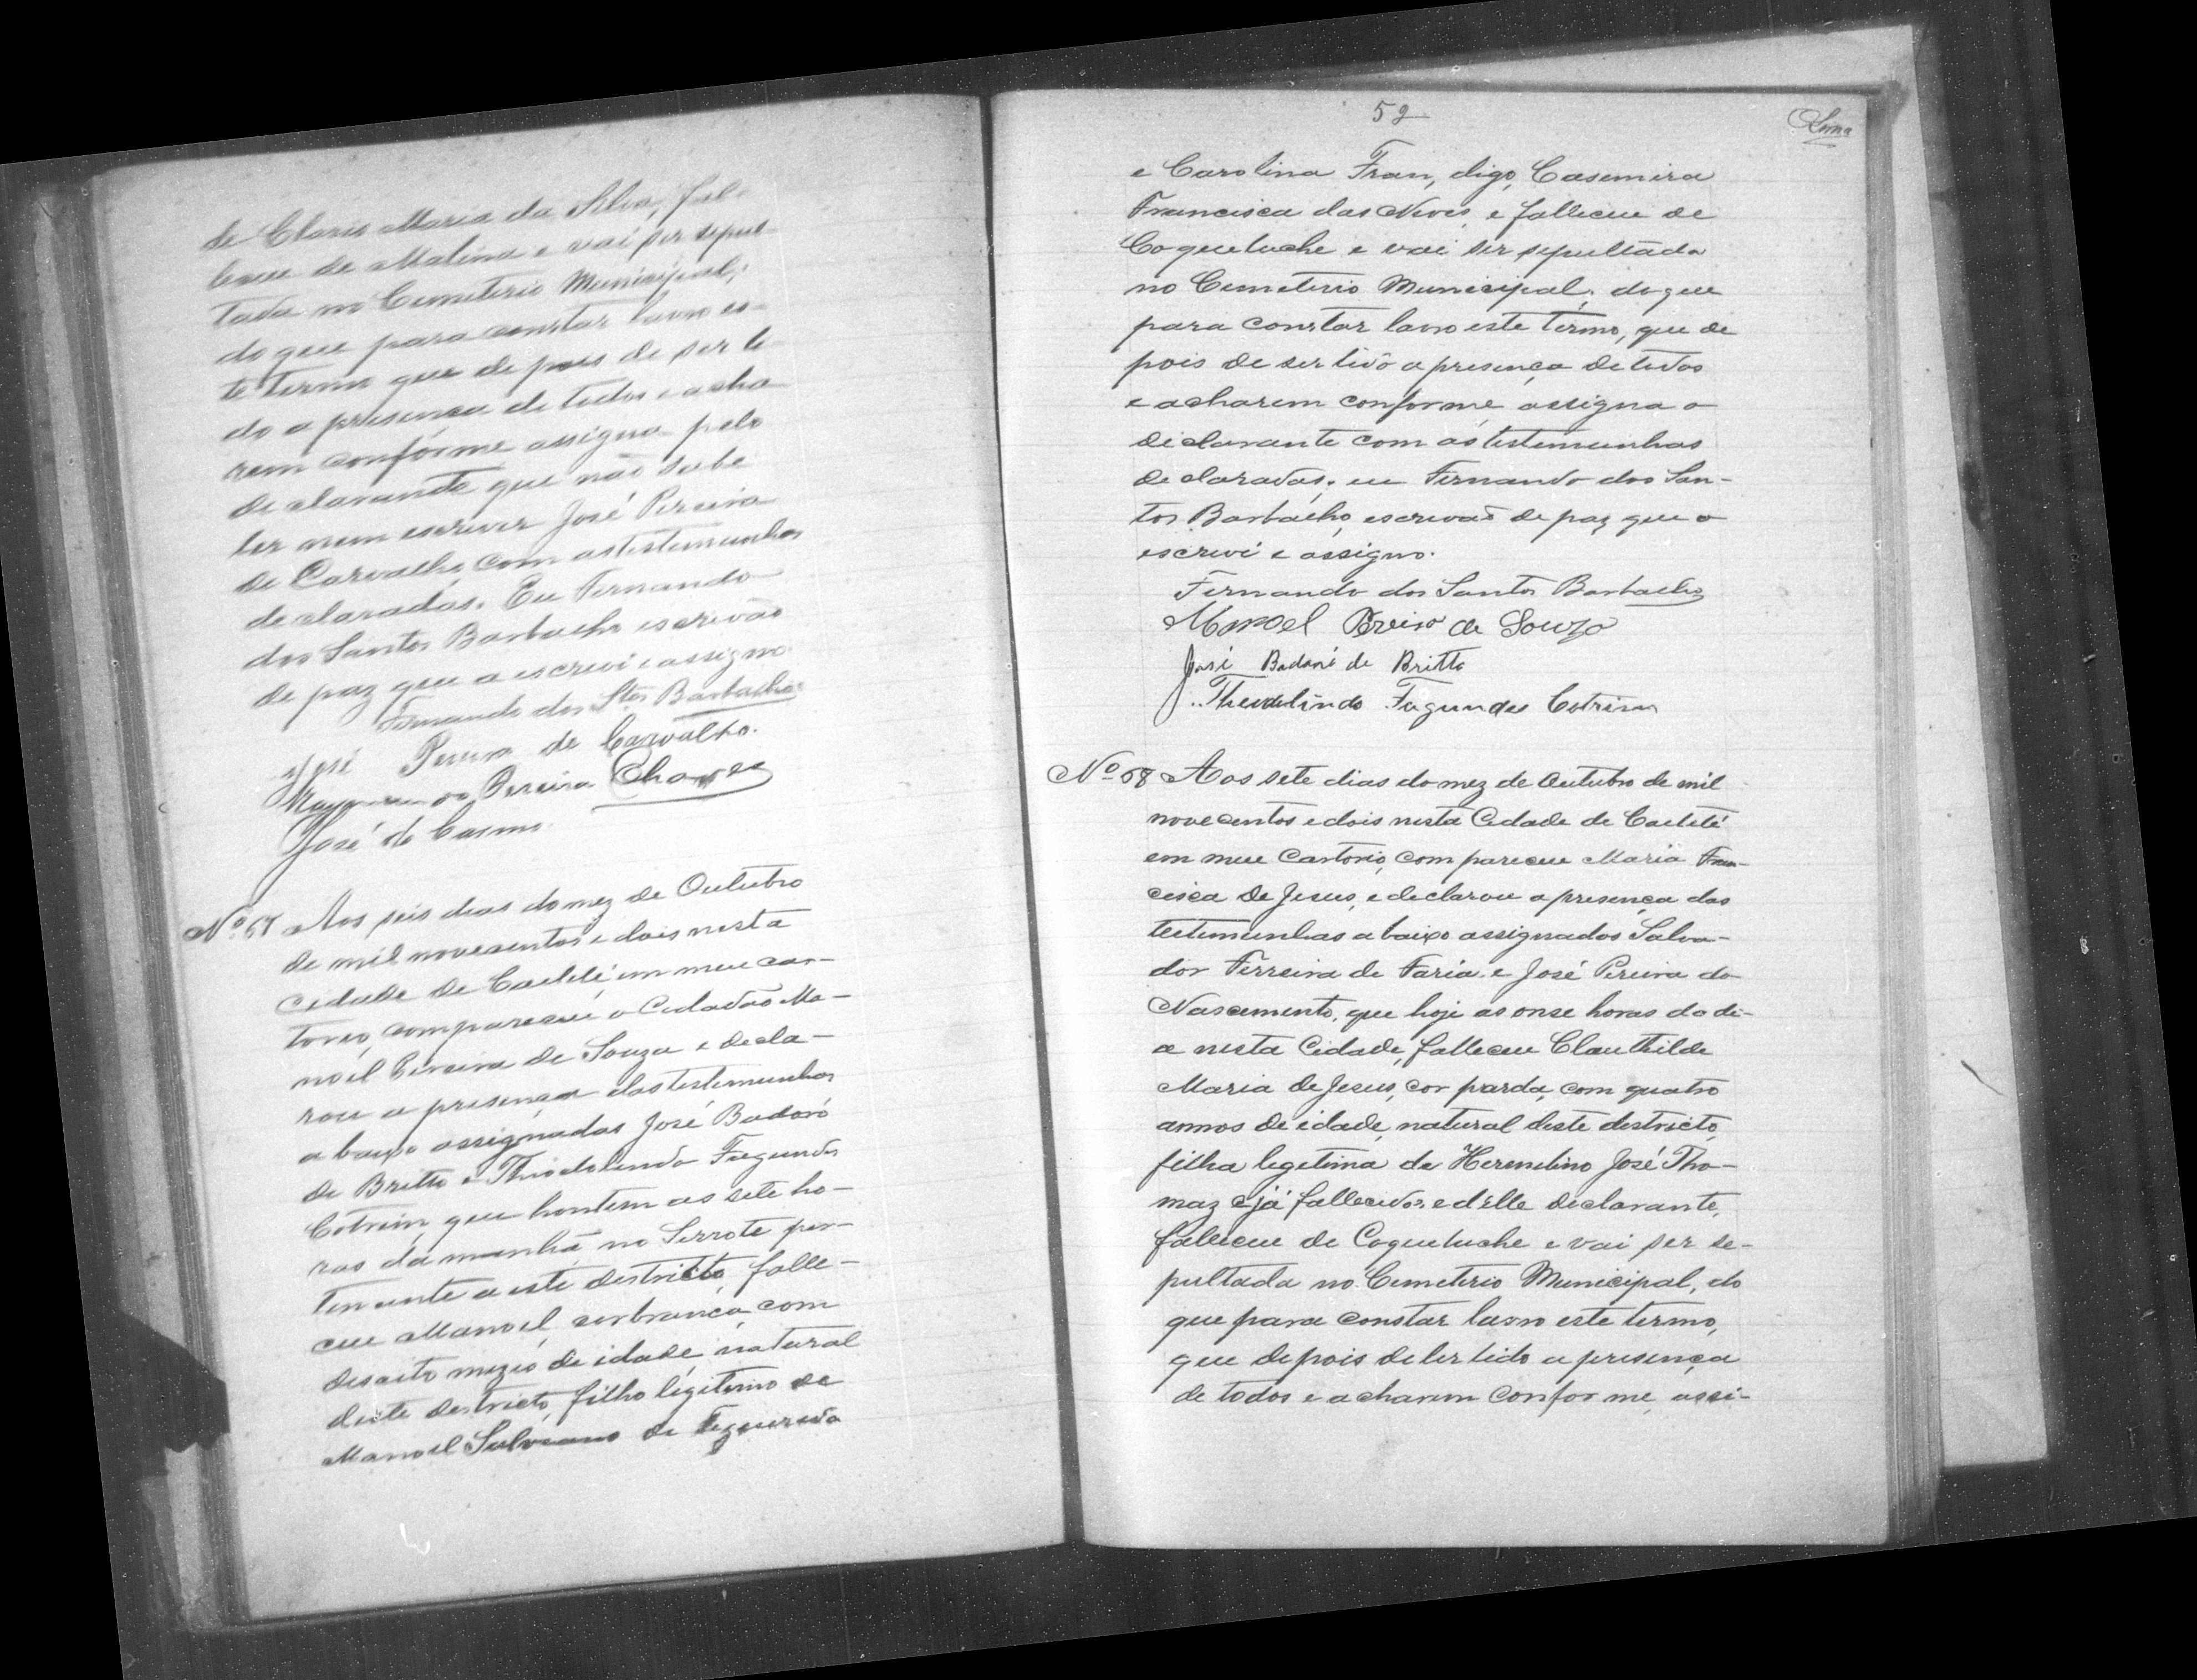 de Claris Maria da Silva, fal-
leceu de Malina e vai ser sepul-
tada no Cemeterio Municipal,
do que para constar lavro es-
te termo que depois de ser li
do a presença de todos e acha
rem conforme assigna pelo
declarante que não sabe
ler nem escrever José Pereira
de Carvalho com as testemunhas
declaradas. Eu Fernando
dos Santos Barbacho escrivão
de paz que a escrevi e assigno
Fernando dos Stos Barbacho
José Pereira de Carvalho.
Pereira Chaves
José do Carmo
Nº 67 Aos seis dias do mez de Outubro
de mil novecentos e dois nesta
cidade de Caeteté em meu car-
torio, compareceu o Cidadão Ma-
noel Pereira de Souza e decla-
rou a presença das testemunhas
a baixo assignadas José Badaró
de Britto e Thiodolindo Fagundes
Cotrim, que hontem as sete ho-
ras da manhã no Serrote per-
tencente a este destricto, falle-
ceu Manoel, cor branca, com
desoito mezes de idade, natural
deste destricto, filho legitimo de
Manoel de Figueredo
52
Lima
e Carolina Fran, digo, Casemira
Francisca das Neves, e falleceu de
Coqueluche e vai ser sepultada
no Cemeterio Municipal, do que
para constar lavro este termo, que de
pois de ser lido a presença de todos
e acharem conforme, assigna o
declarante com as testemunhas
declaradas, eu Fernando dos San-
tos Barbacho, escrivão de paz que o
escrevi e assigno.
Fernando dos Santos Barbacho
Manoel Pereira de Souza
José Badaró de Britto
Theodolindo Fagundes Cotrim
Nº 68 Aos sete dias do mez de Outubro de mil
novecentos e dois nesta Cidade de Caeteté
em meu Cartorio, compareceu Maria Fran-
cisca de Jesus, e declarou a presença das
testemunhas a baixo assignados Salva-
dor Ferreira de Faria e José Pereira do
Nascimento, que hoje as onse horas do di-
a nesta Cidade, falleceu Clauthilde
Maria de Jesus, cor parda, com quatro
annos de idade, natural deste destricto,
filha legitima de Hermelino José Tho-
maz já fallecido, e d'elle declarante,
falleceu de Coqueluche e vai ser se-
pultada no Cemeterio Municipal, do
que para constar lavro este termo,
que depois de ler lido a presença
de todos e acharem conforme, assi-